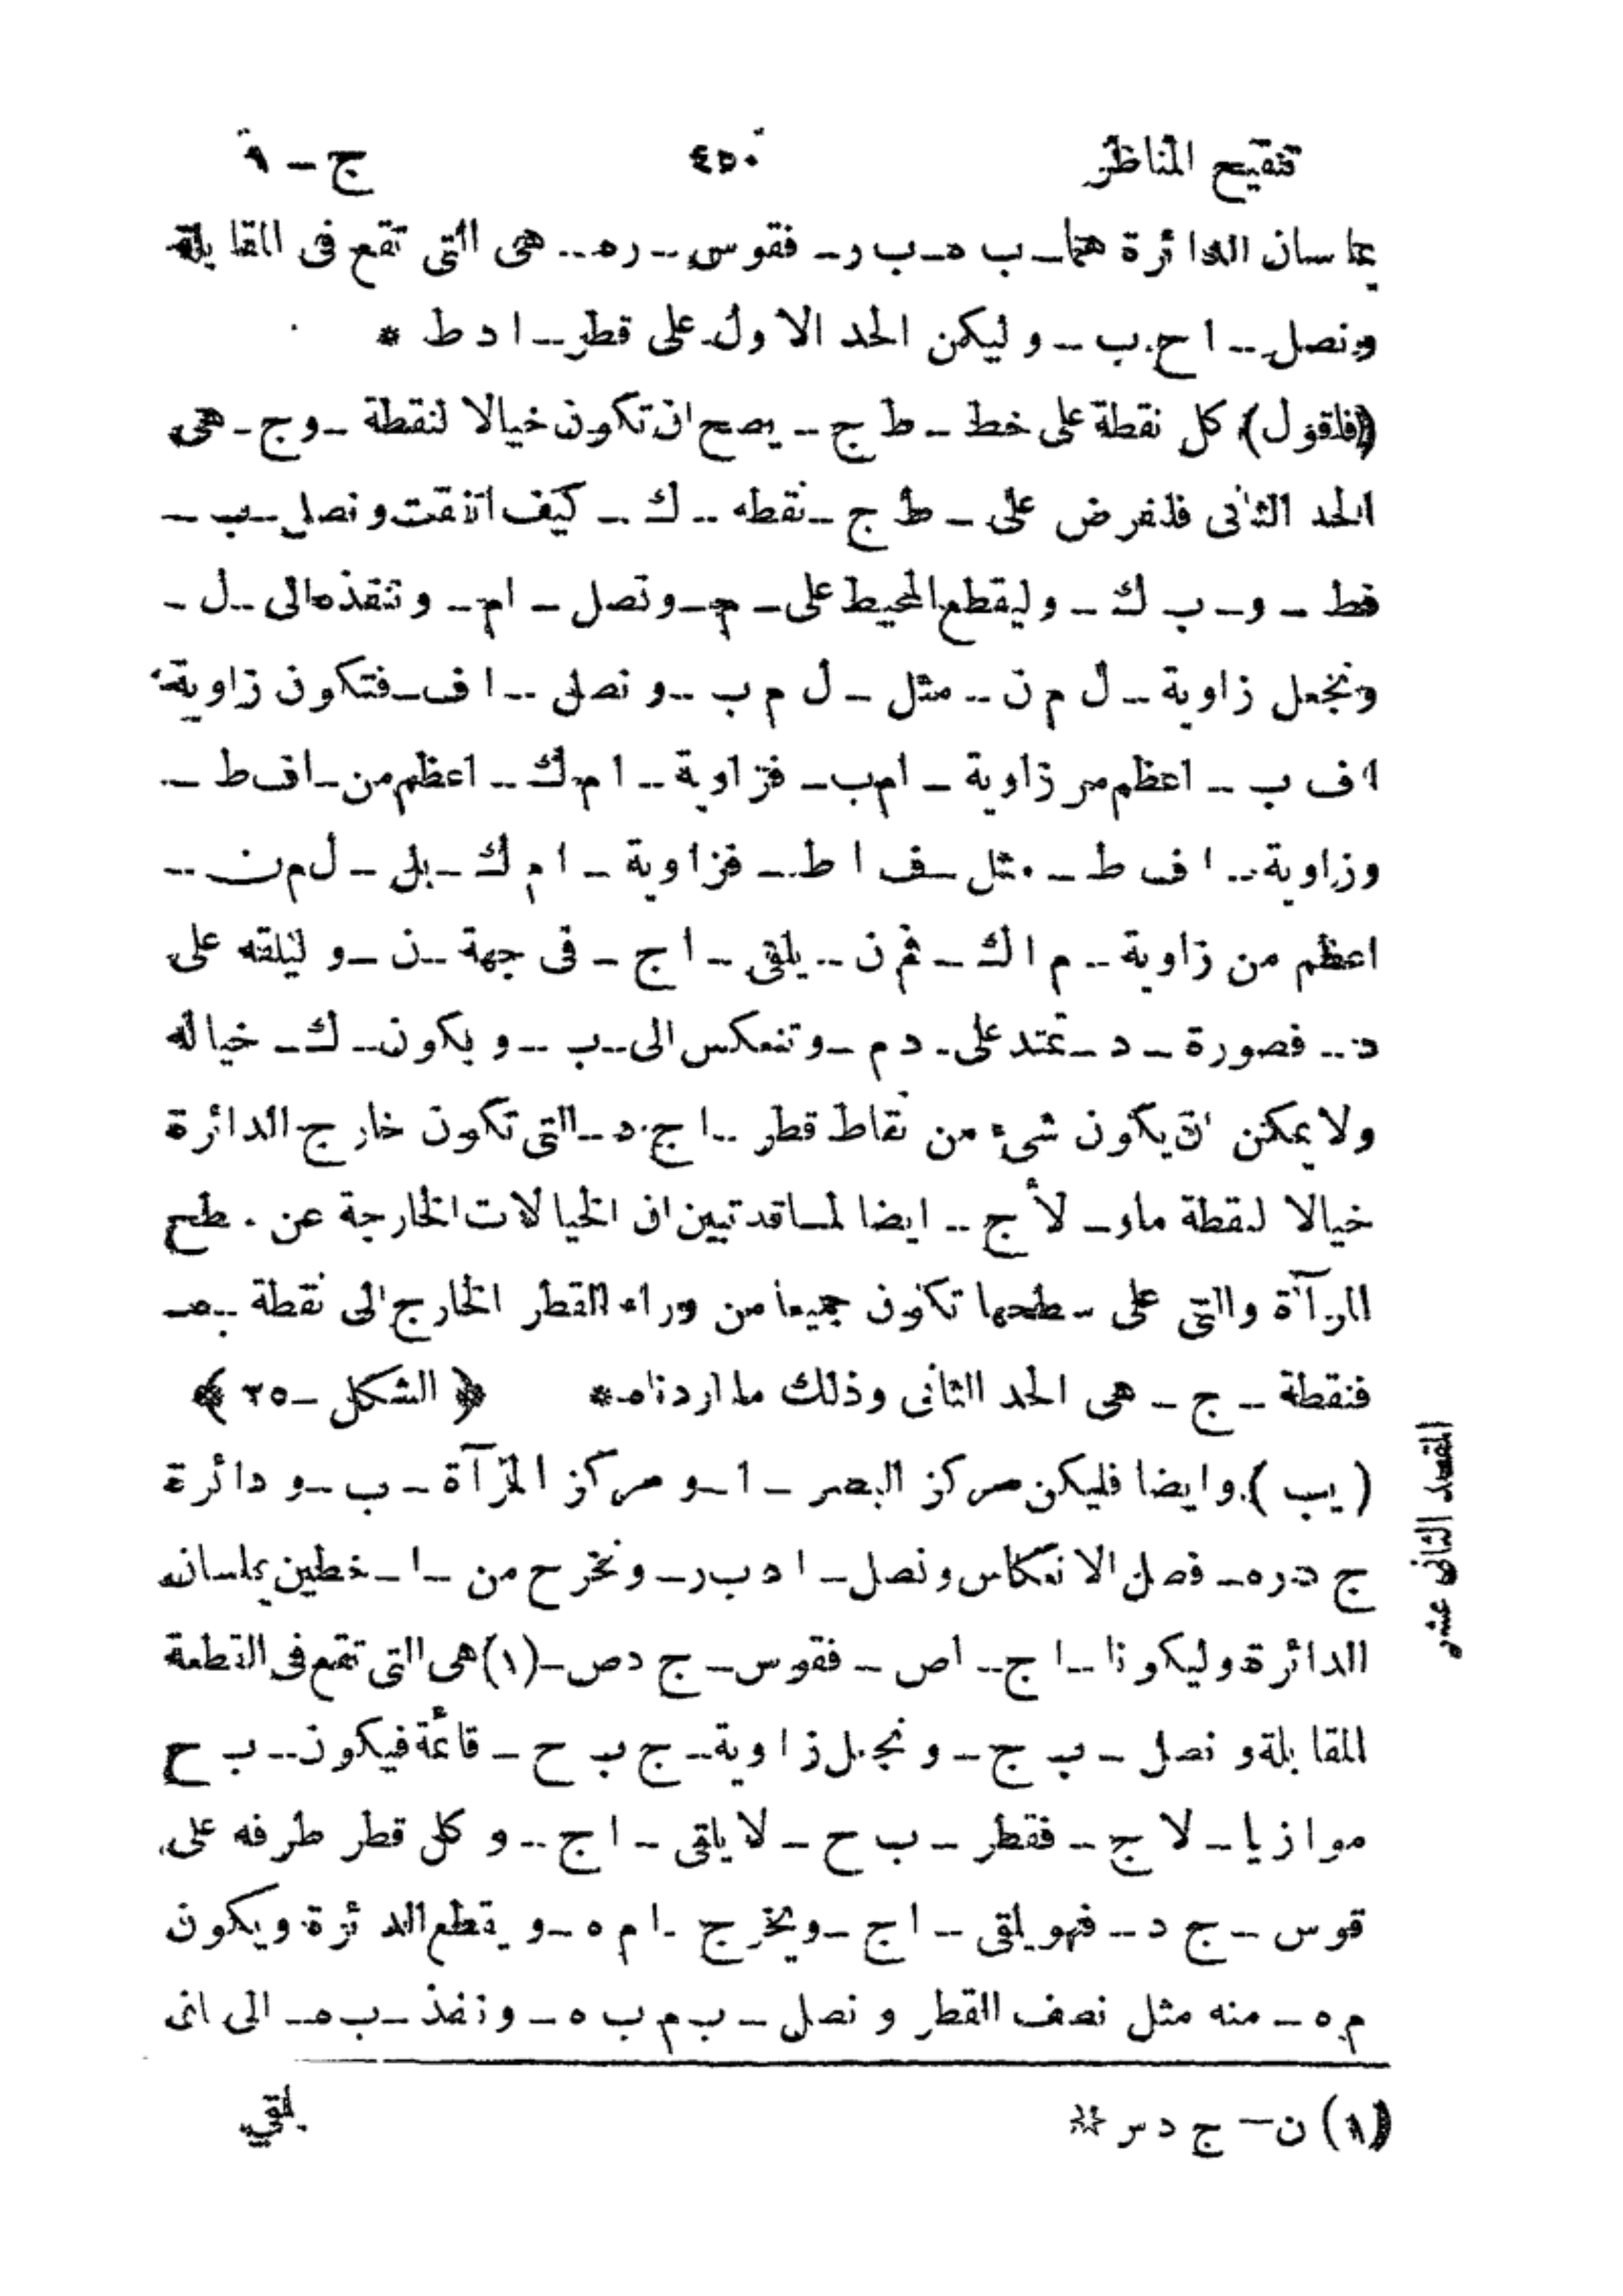 تنقيح المناظر ٤٥٠ ج – ٩
يماسان الدائرة هما – ب ه – ب ر – فقوس – ره – هى التى تقع فى المقابلة
ونصل – ا ح ب – وليكن الحد الاول على قطر – ا د ط *
(فاقول) كل نقطة على خط – ط ج – يصح ان تكون خيالا لنقطة – وج – هى
الحد الثانى فلنفرض على – ط ج – نقطه – ك – كيف اتفقت ونصل – ب –
قط – و – ب ك – وليقطع المحيط على – م – ونصل – ام – وننفذه الى – ل –
ونجعل زاوية – ل م ن – مثل – ل م ب – ونصل – ا ف – فتكون زاوية
ا ف ب – اعظم من زاوية – ام ب – فزاوية – ام ك – اعظم من – اف ط –
وزاوية – اف ط – مثل – ف ا ط – فزاوية – ا م ك – بل – ل م ن –
اعظم من زاوية – م ا ك – فم ن – يلقى – ا ج – فى جهة – ن – و ليلقه على
د – فصورة – د – تمتد على – د م – وتنعكس الى – ب – ويكون – ك – خياله
ولا يمكن ان يكون شىء من نقاط قطر – ا ج د – التى تكون خارج الدائرة
خيالا لنقطة ما و – لأ ج – ايضا لما قد تبين ان الخيالات الخارجة عن سطح
المرآة والتى على سطحها تكون جميعا من وراء القطر الخارج الى نقطة – بصـ
فنقطة – ج – هى الحد الثانى وذلك ما اردناه * ﴿ الشكل – ٢٥ ﴾
(يب) وايضا فليكن مركز البصر – ا – و مركز المرآة – ب – و دائرة
ج د ره – فصل الانعكاس ونصل – ا د ب ر – ونخرح من – ا – خطين يماسان
الدائرة وليكونا – ا ج – اص – فقوس – ج دص – (١) هى التى تقع فى القطعة
المقابلة ونصل – ب ج – و نجعل زاوية – ج ب ح – قائمة فيكون – ب ح
موازيا – لا ج – فقطر – ب ح – لا يلقى – ا ج – و كل قطر طرفه على
قوس – ج د – فهو يلقى – ا ج – ويخرج – ا م ه – ويقطع الدائرة ويكون
م ه – منه مثل نصف القطر و نصل – ب م ب ه – وننفذ – ب ه – الى ان
(١) ن – ج د س *
يلقى
المقصد الثانى عشر